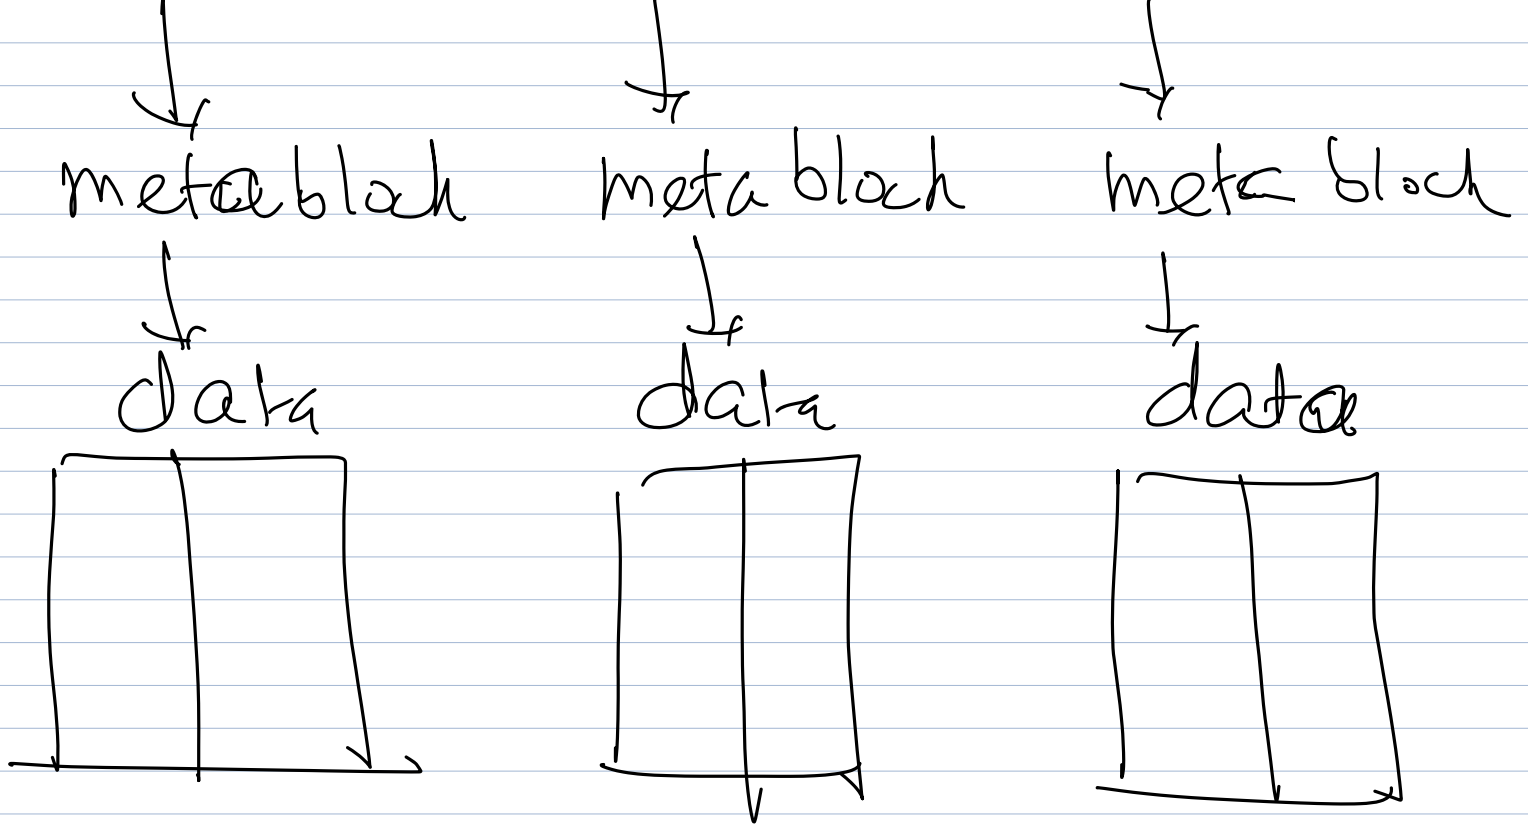 meta block meta block meta block
data data data